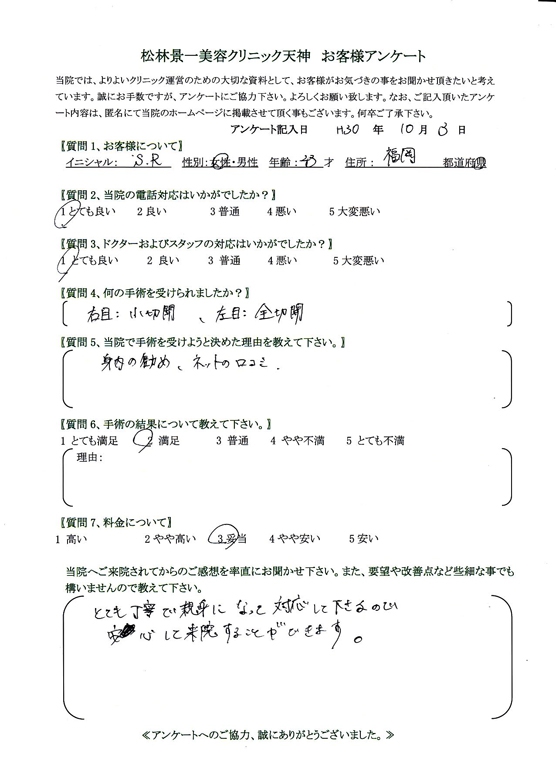 松林景一美容クリニック天神　お客様アンケート
当院では、よりよいクリニック運営のための大切な資料として、お客様がお気づきの事をお聞かせ頂きたいと考え
ています。誠にお手数ですが、アンケートにご協力下さい。よろしくお願い致します。なお、ご記入頂いたアンケ
ート内容は、匿名にて当院のホームページに掲載させて頂く事もございます。何卒ご了承下さい。
アンケート記入日　H30 年 10 月 3 日
〖質問 1、お客様について〗
イニシャル： S.R 性別：女性・男性 年齢： 才 住所： 福岡 都道府県
〖質問 2、当院の電話対応はいかがでしたか？〗
1 とても良い 2 良い 3 普通 4 悪い 5 大変悪い
〖質問 3、ドクターおよびスタッフの対応はいかがでしたか？〗
1 とても良い 2 良い 3 普通 4 悪い 5 大変悪い
〖質問 4、何の手術を受けられましたか？〗
右目：小切開 、左目：全切開
〖質問 5、当院で手術を受けようと決めた理由を教えて下さい。〗
身内の勧め、ネットの口コミ.
〖質問 6、手術の結果について教えて下さい。〗
1 とても満足 2 満足 3 普通 4 やや不満 5 とても不満
理由：
〖質問 7、料金について〗
1 高い 2 やや高い 3 妥当 4 やや安い 5 安い
当院へご来院されてからのご感想を率直にお聞かせ下さい。また、要望や改善点など些細な事でも
構いませんので教えて下さい。
とても丁寧で親身になって対応して下さるので
安心して来院することができます。
≪アンケートへのご協力、誠にありがとうございました。≫